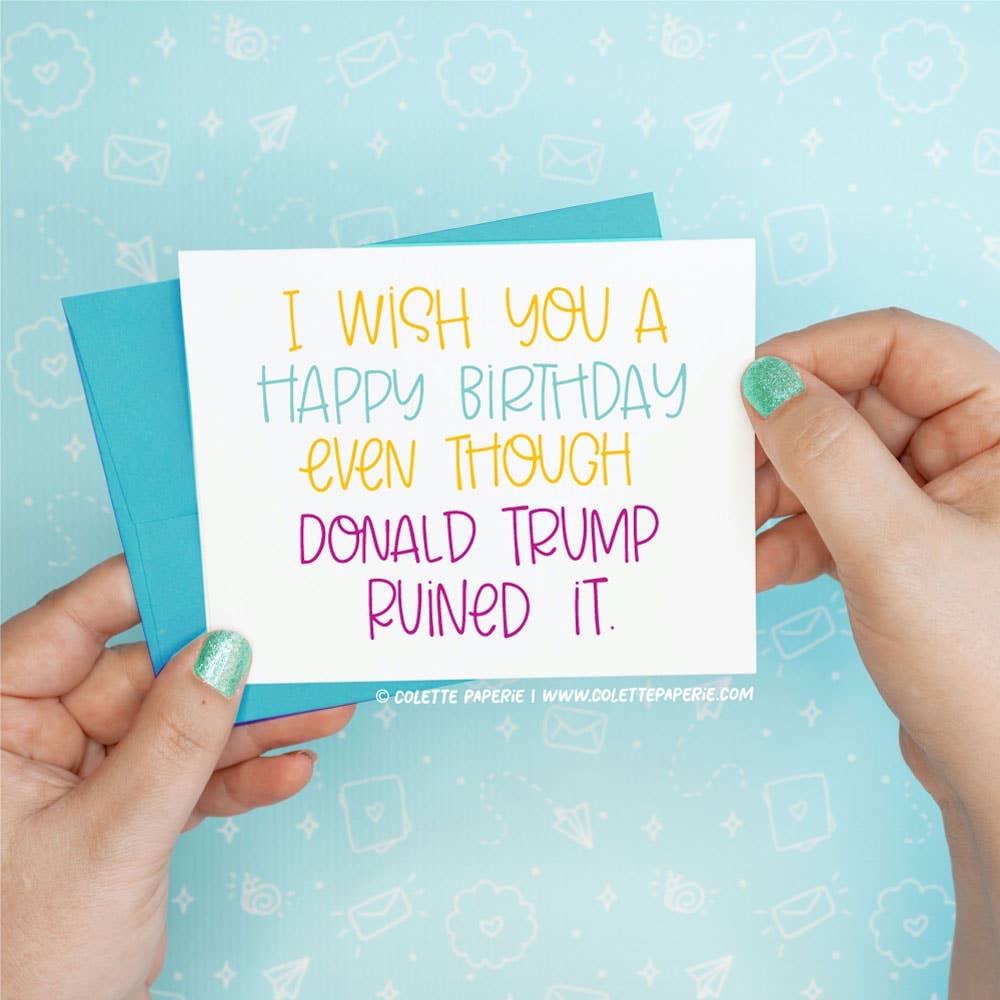 I WISH YOU A
HAPPY BIRTHDAY
EVEN THOUGH
DONALD TRUMP
RUINED IT.
© COLETTE PAPERIE | WWW.COLETTEPAPERIE.COM